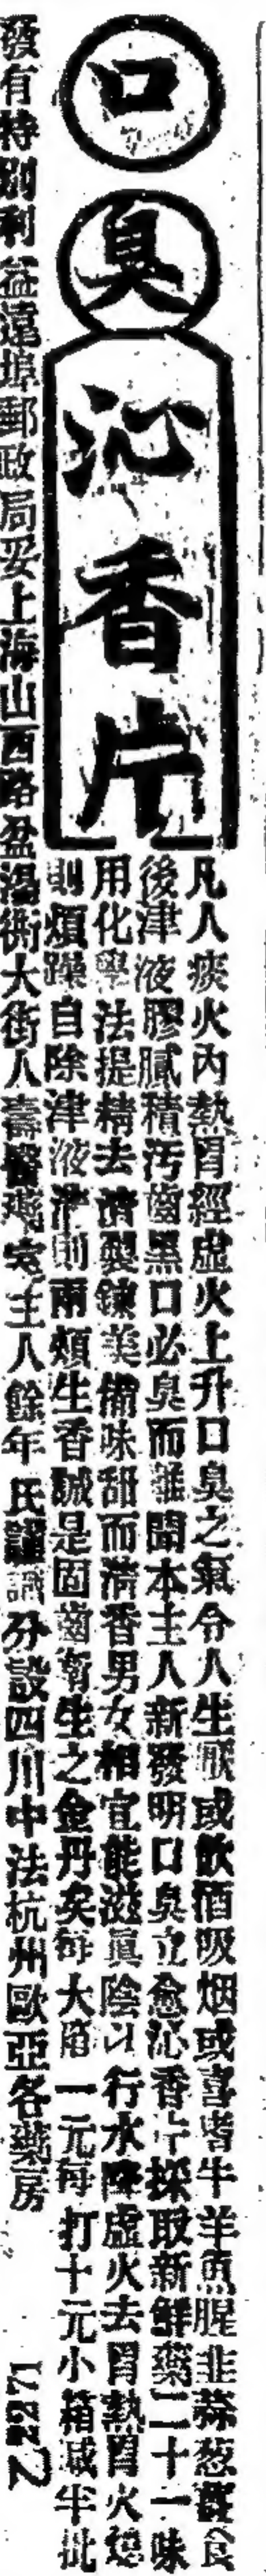 口臭
沁香片
凡人痰火內熱胃經虛火上升口臭之氣令人生厭或飲酒吸烟或喜嗜牛羊魚腥韭蒜葱薤食
後津液膠膩積汚齒黑口必臭而難聞本主人新發明口臭立愈沁香片採取新鮮藥二十一味
用化學法提精去渣製鍊美備味甜而清香男女相宜能滋眞陰以行水降虛火去胃熱胃火熄
則煩躁自除津液潔則兩頰生香誠是固齒衛生之金丹矣每大箱一元每打十元小箱減半批
發有特別利益遠埠郵政局妥上海山西路盆湯衖大街人壽醫藥室主人餘年氏謹識分設四川中法杭州歐亞各藥房